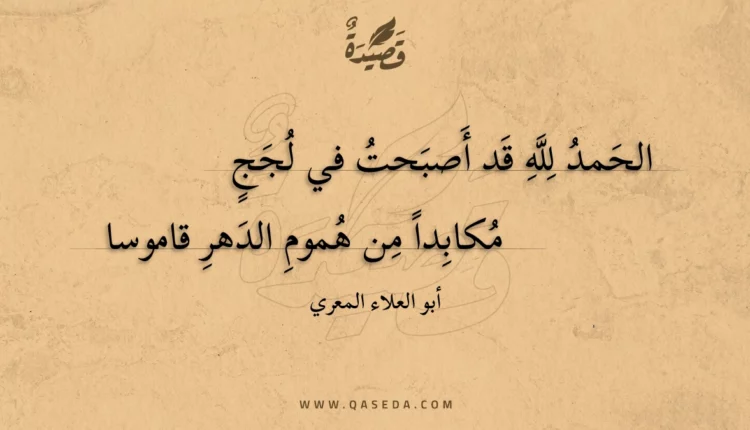 قَصِيْدَةٌ
الحَمدُ لِلَّهِ قَد أَصبَحتُ في لُجَجٍ
مُكابِداً مِن هُمومِ الدَهرِ قاموسا
أبو العلاء المعري
WWW.QASEDA.COM